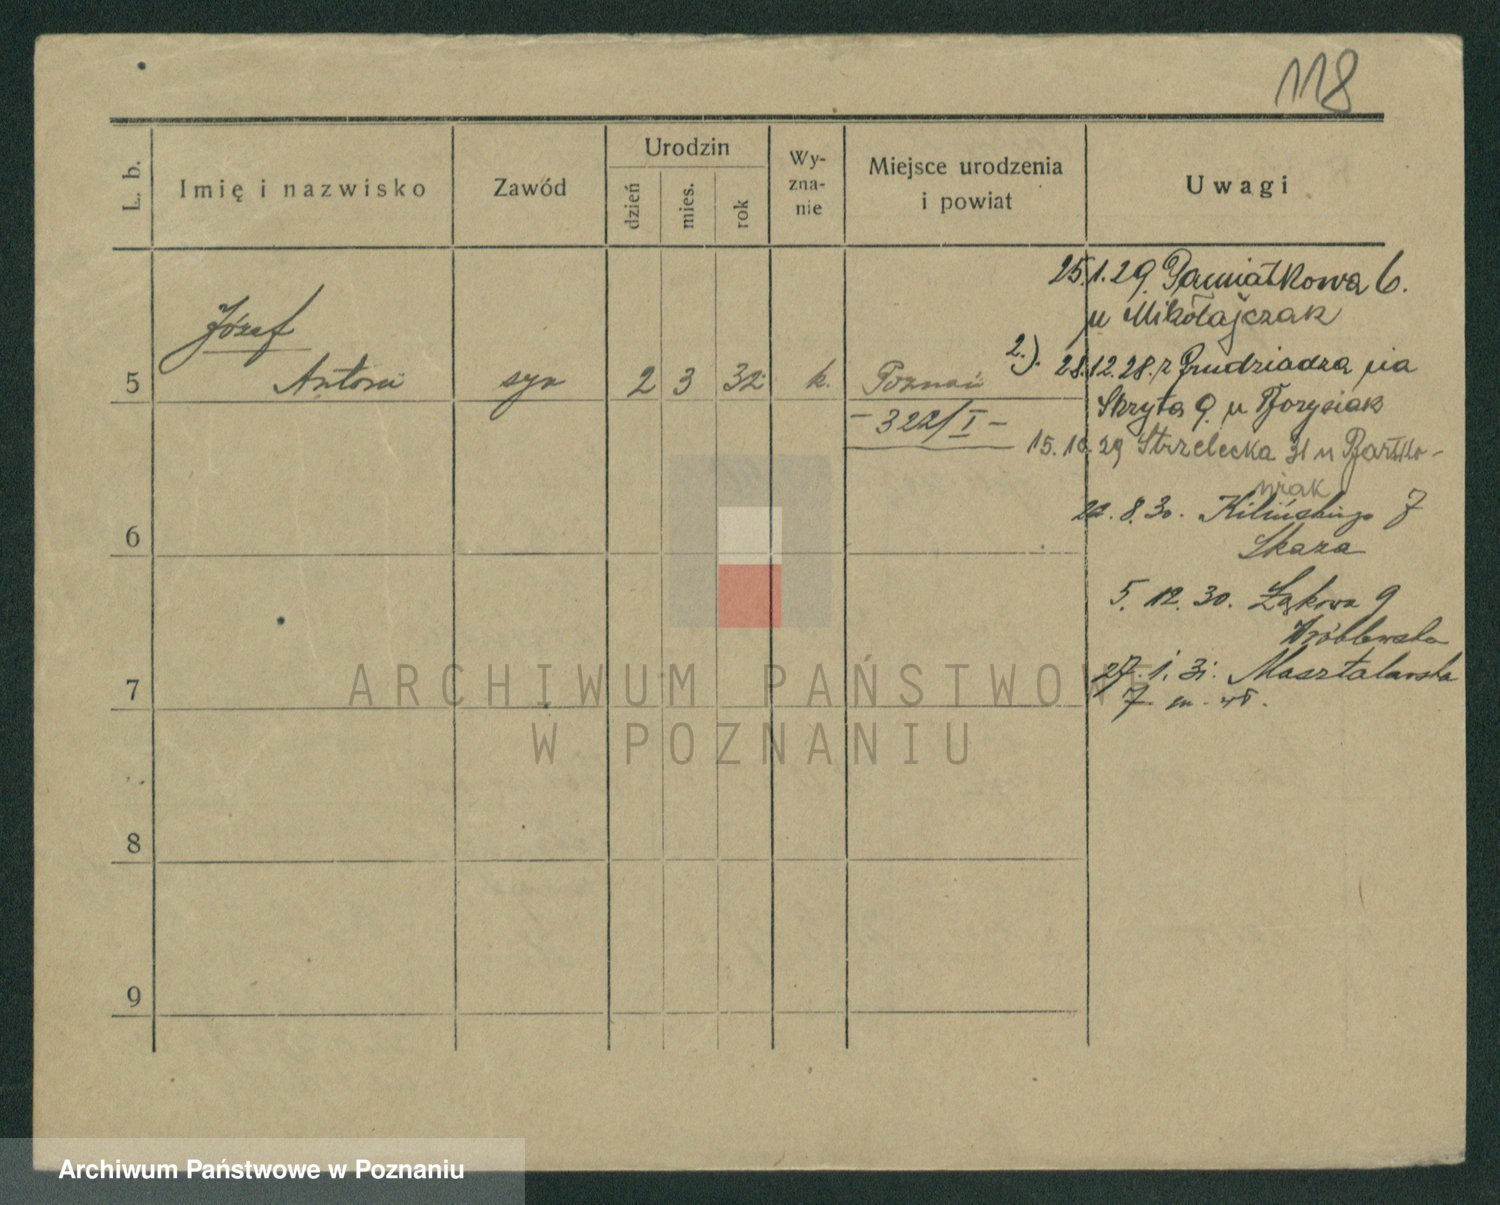 118
L. b.
Imię i nazwisko
Zawód
Urodzin
dzień
mies.
rok
Wy-
zna-
nie
Miejsce urodzenia
i powiat
Uwagi
Józef
5 Antoni syn 2 3 32 k. Poznań
– 322/I –
25.1.29. Pamiątkowa 6.
u Mikołajczak
2.). 28.12.28. z Grudziądza na
Skryta 9. u Borysiak
15.10.29 Strzelecka 31 u Bartko-
wiak
22. 8. 30. Kilińskiego 7
Skaza
5. 12. 30. Łąkowa 9
Wróblewska
27. 1. 31. Masztalarska
7 m. wł.
6
7
8
9
ARCHIWUM PAŃSTWOWE
W POZNANIU
Archiwum Państwowe w Poznaniu